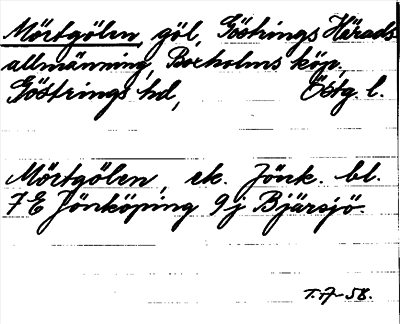 Mörtgölen, göl, Göstrings Härads
allmänning, Boxholms köp,
Göstrings hd, Östg. l.
Mörtgölen, ek. Jönk. bl.
7 E Jönköping 9 j Bjärsjö.
T. A-58.